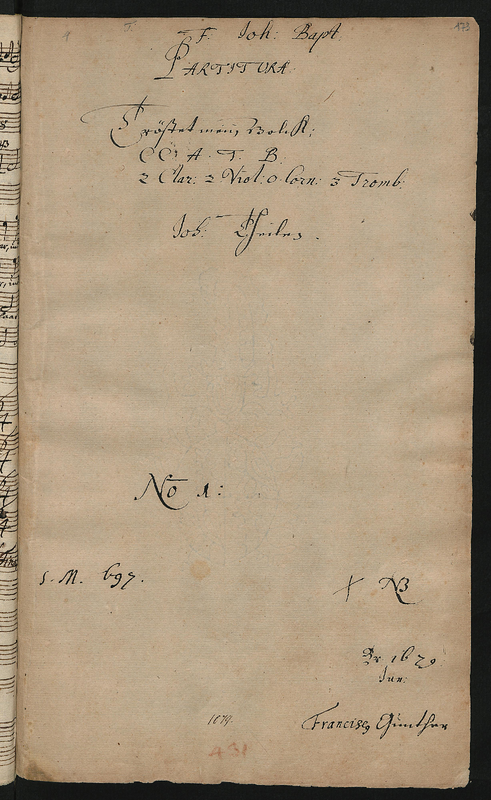 173
F. Joh: Bapt.
PARTITURA
Tröstet mein Volck;
CC A. T. B.
2 Clar: 2 Viol: o Corn: 3 Tromb:
Joh: Theile
No 1:
S. M. 697.
+ NB
Jun:
1079.
Francisc9 Günther
431